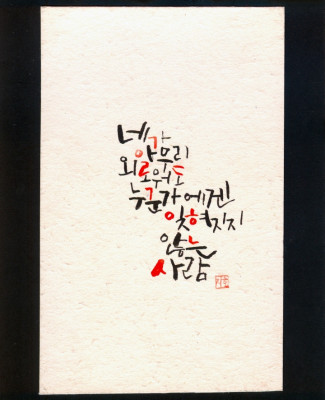 네가
아무리
외로워도
누군가에겐
잊혀지지
않는
사람